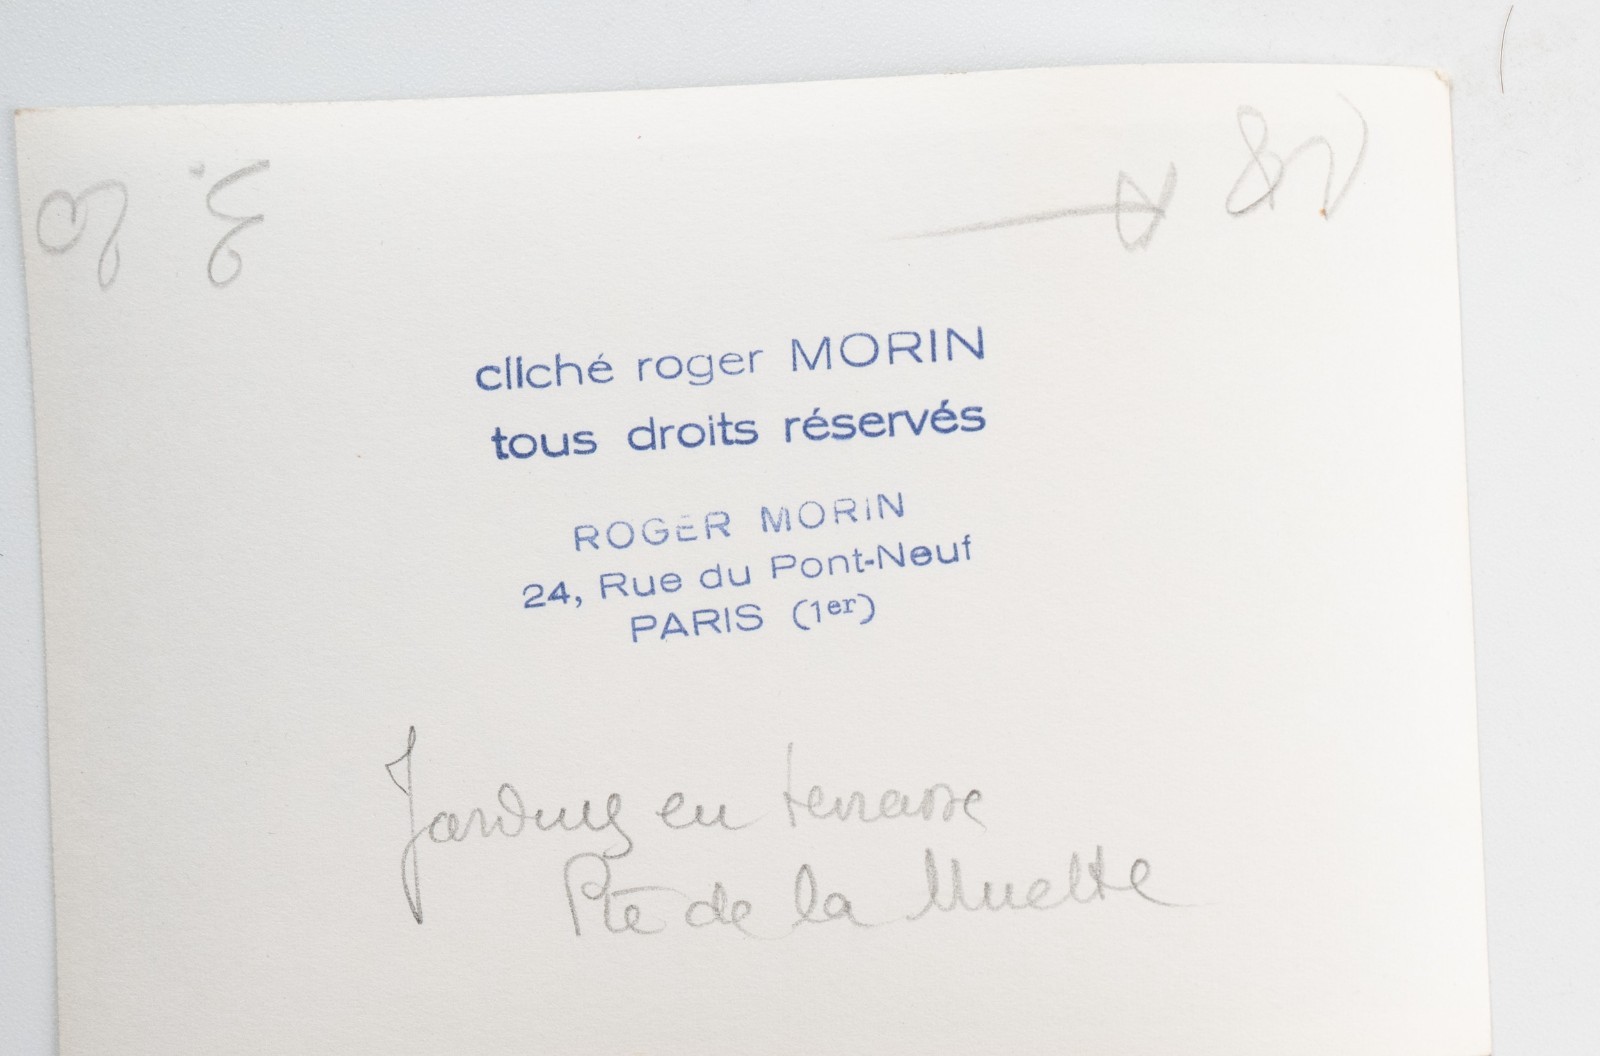 cliché roger MORIN
tous droits réservés
ROGER MORIN
24, Rue du Pont-Neuf
PARIS (1er)
Jardins en terrasse
Pte de la Muette